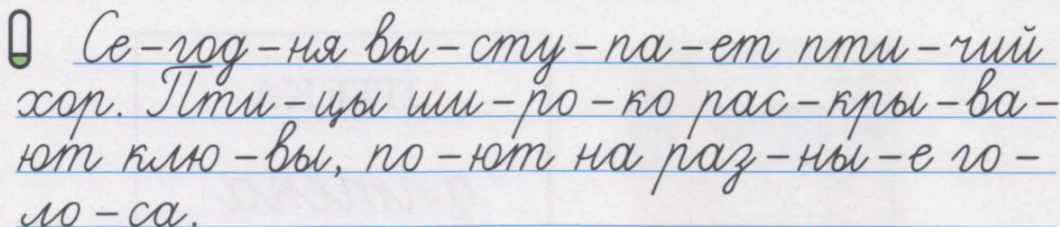 Се-год-ня вы-сту-па-ет пти-чий
хор. Пти-цы ши-ро-ко рас-кры-ва-
ют клю-вы, по-ют на раз-ны-е го-
ло-са.